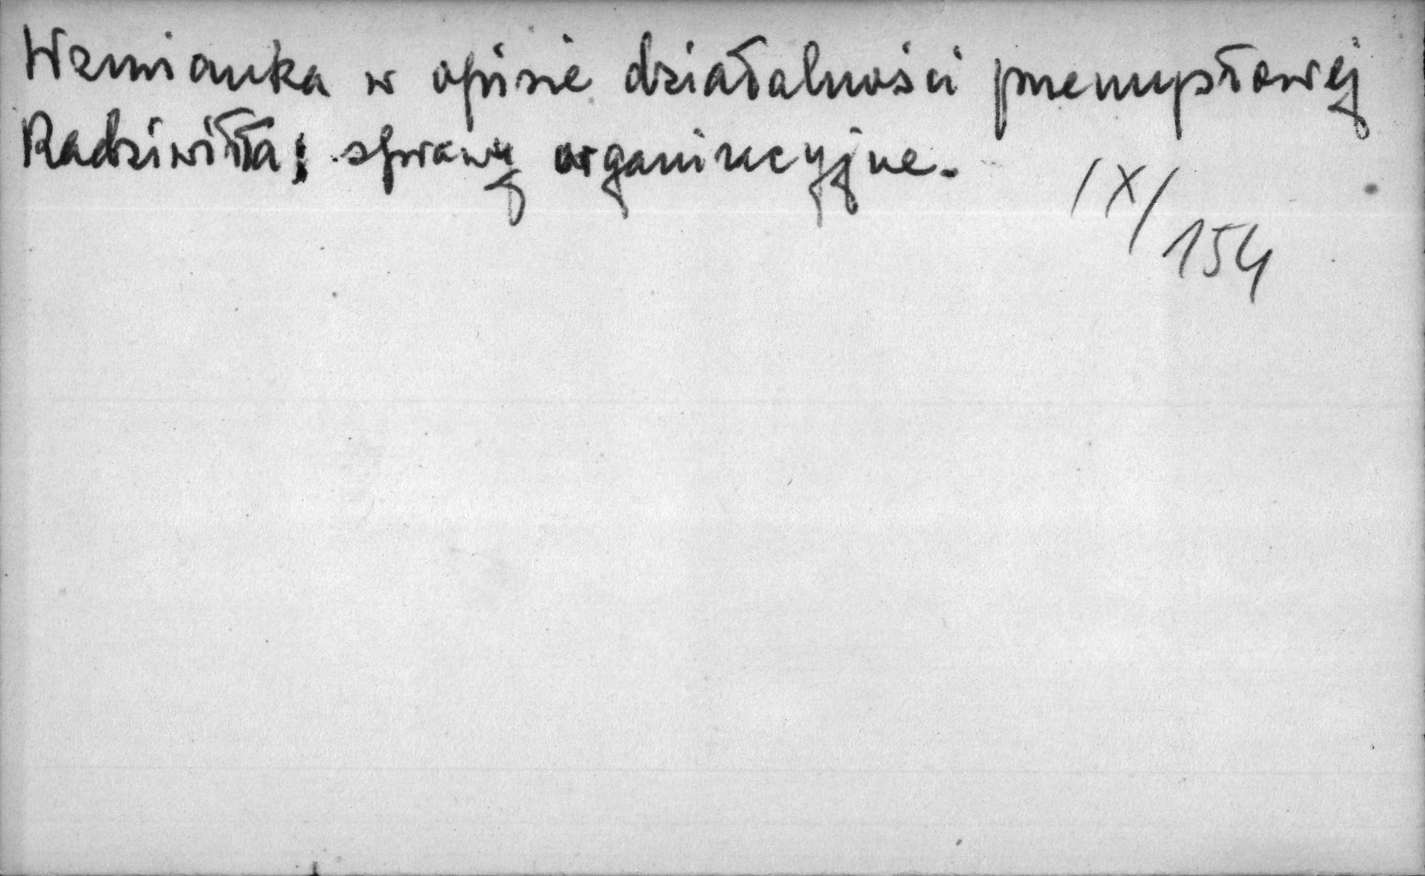 Wzmianka w opisie działalności przemysłowej
Radziwiłła; sprawy organizacyjne.
IX/154